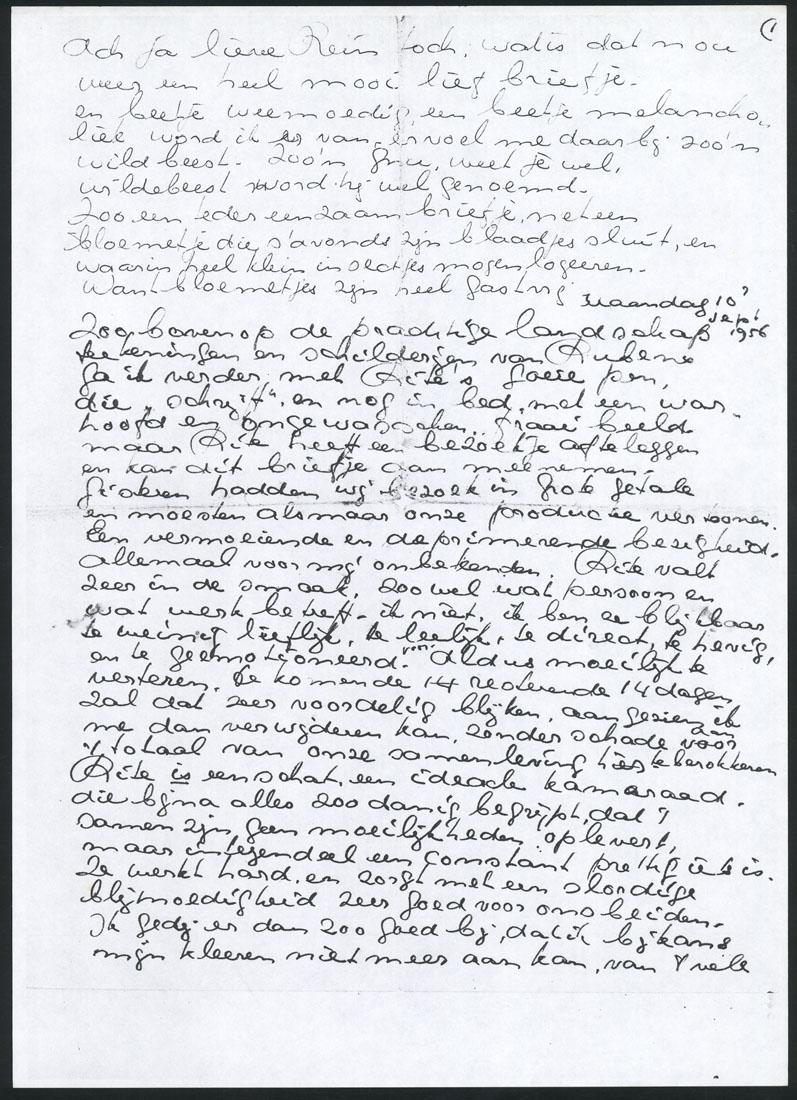 (1
Ach ja lieve Rein toch, wat is dat nou
weer een heel mooi lief briefje.
en beetje weemoedig, een beetje melancho-
liek word ik er van, en voel me daar bij zoo'n
wildbeest. Zoo'n gnu, weet je wel,
wildebeest word hij wel genoemd.
Zoo een teder eenzaam briefje, met een
bloemetje die s'avonds zijn blaadjes sluit, en
waarin heel klein insectjes mogen logeeren.
Want bloemetjes zijn heel gastvrij
maandag 10
sept
1956
Zoo bovenop de prachtige landschaps
tekeningen en schilderijen van Rubens
ga ik verder met Rite's goeie pen,
die "schrijft", en nog in bed, met een war-
hoofd en ongewasschen. Fraai beeld
maar Rite heeft een bezoekje af te leggen
en kan dit briefje dan meenemen.
Gisteren hadden wij bezoek in grote getale
en moesten alsmaar onze productie vertoonen.
Een vermoeiende en deprimerende bezigheid.
allemaal voor mij onbekenden. Rite valt
zeer in de smaak, zoowel wat persoon en
wat werk betreft. ik niet, ik ben er blijkbaar
te weinig lieflijk, te leelijk, te direct, te hevig,
en te geëmotioneerd voor. Aldus moeilijk te
verteren. De komende 14 resterende 14 dagen
zal dat zeer voordelig blijken, aangezien ik
me dan verwijderen kan, zonder schade aan voor
't totaal van onze samenleving hier te berokkenen
Rite is een schat, een ideale kameraad.
die bijna alles zoodanig begrijpt, dat 't
samen zijn geen moeilijkheden oplevert,
maar integendeel een constant prettig iets is.
Ze werkt hard, en zorgt met een slordige
blijmoedigheid zeer goed voor ons beiden.
Ik gedij er dan zoo goed bij, dat ik bijkans
mijn kleeren niet meer aan kan, van 't vele